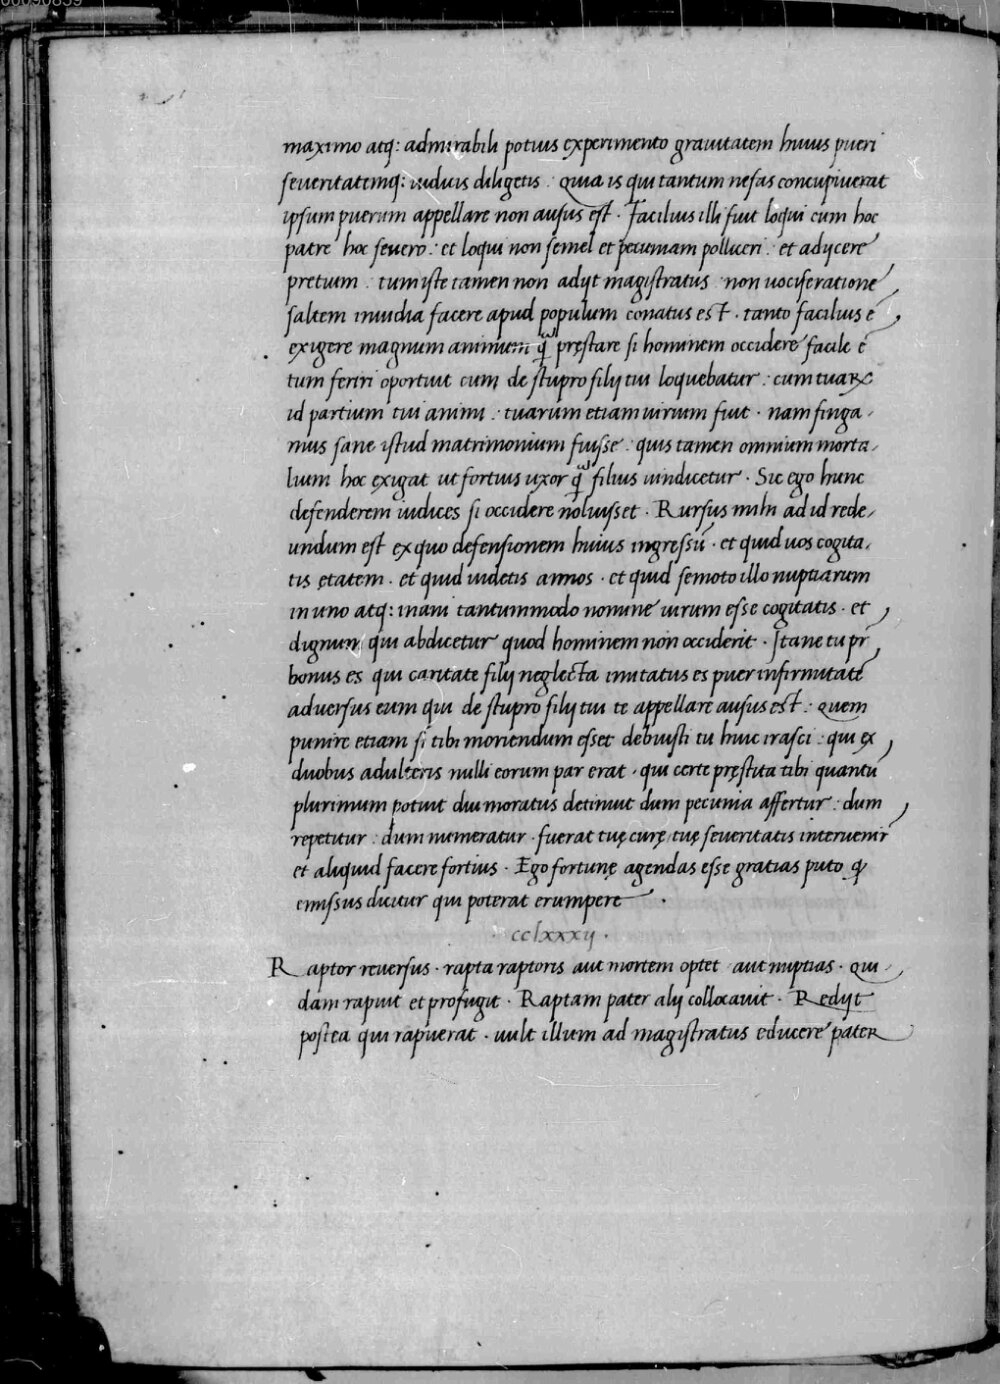 maximo atq: admirabili potius experimento grauitatem huius pueri
seueritatemq: iudicis diligetis. quia is qui tantum nefas concupiuerat
ipsum puerum appellare non ausus est. Facilius illi fuit loqui cum hoc
patre hoc seuero. et loqui non semel et pecuniam polliceri. et adijcere
pretium. tum iste tamen non adijt magistratus non uociferatione
saltem inuidia facere apud populum conatus est. tanto facilius ē
exigere magnum animum q̄ pręstare si hominem occidere facile ē
tum feriri oportuit cum de stupro filij tui loquebatur. cum tuarȝ
id partium tui animi. tuarum etiam uirium fuit. nam finga-
mus sane istud matrimonium fuisse. quis tamen omnium morta-
lium hoc exigat ut fortius uxor q̄ filius uindicetur. Sic ego hunc
defenderem iudices si occidere noluisset. Rursus mihi ad id rede-
undum est ex quo defensionem huius ingressū. et quid uos cogita-
tis ętatem. et quid uidetis annos. et quid semoto illo nuptiarum
in uno atq: inani tantummodo nomine uirum esse cogitatis. et
dignum qui abdicetur quod hominem non occiderit. Itane tu pr̄
bonus es qui caritate filij neglecta imitatus es pueri infirmitatē
aduersus eum qui de stupro filij tui te appellare ausus est. quem
punire etiam si tibi moriendum esset debuisti tu huic irasci. qui ex
duobus adulteris nulli eorum par erat. qui certe pręstita tibi quantū
plurimum potuit diu moratus detinuit dum pecunia affertur. dum
repetitur. dum numeratur. fuerat tuę curę tuę seueritatis interuenir
et aliquid facere fortius. Ego fortunę agendas esse gratias puto ꝙ
emissus dicitur qui poterat erumpere.
. cclxxxij.
Raptor reuersus. rapta raptoris aut mortem optet aut nuptias. Qui-
dam rapuit et profugit. Raptam pater alij collocauit. Redijt
postea qui rapuerat. uult illum ad magistratus educere pater